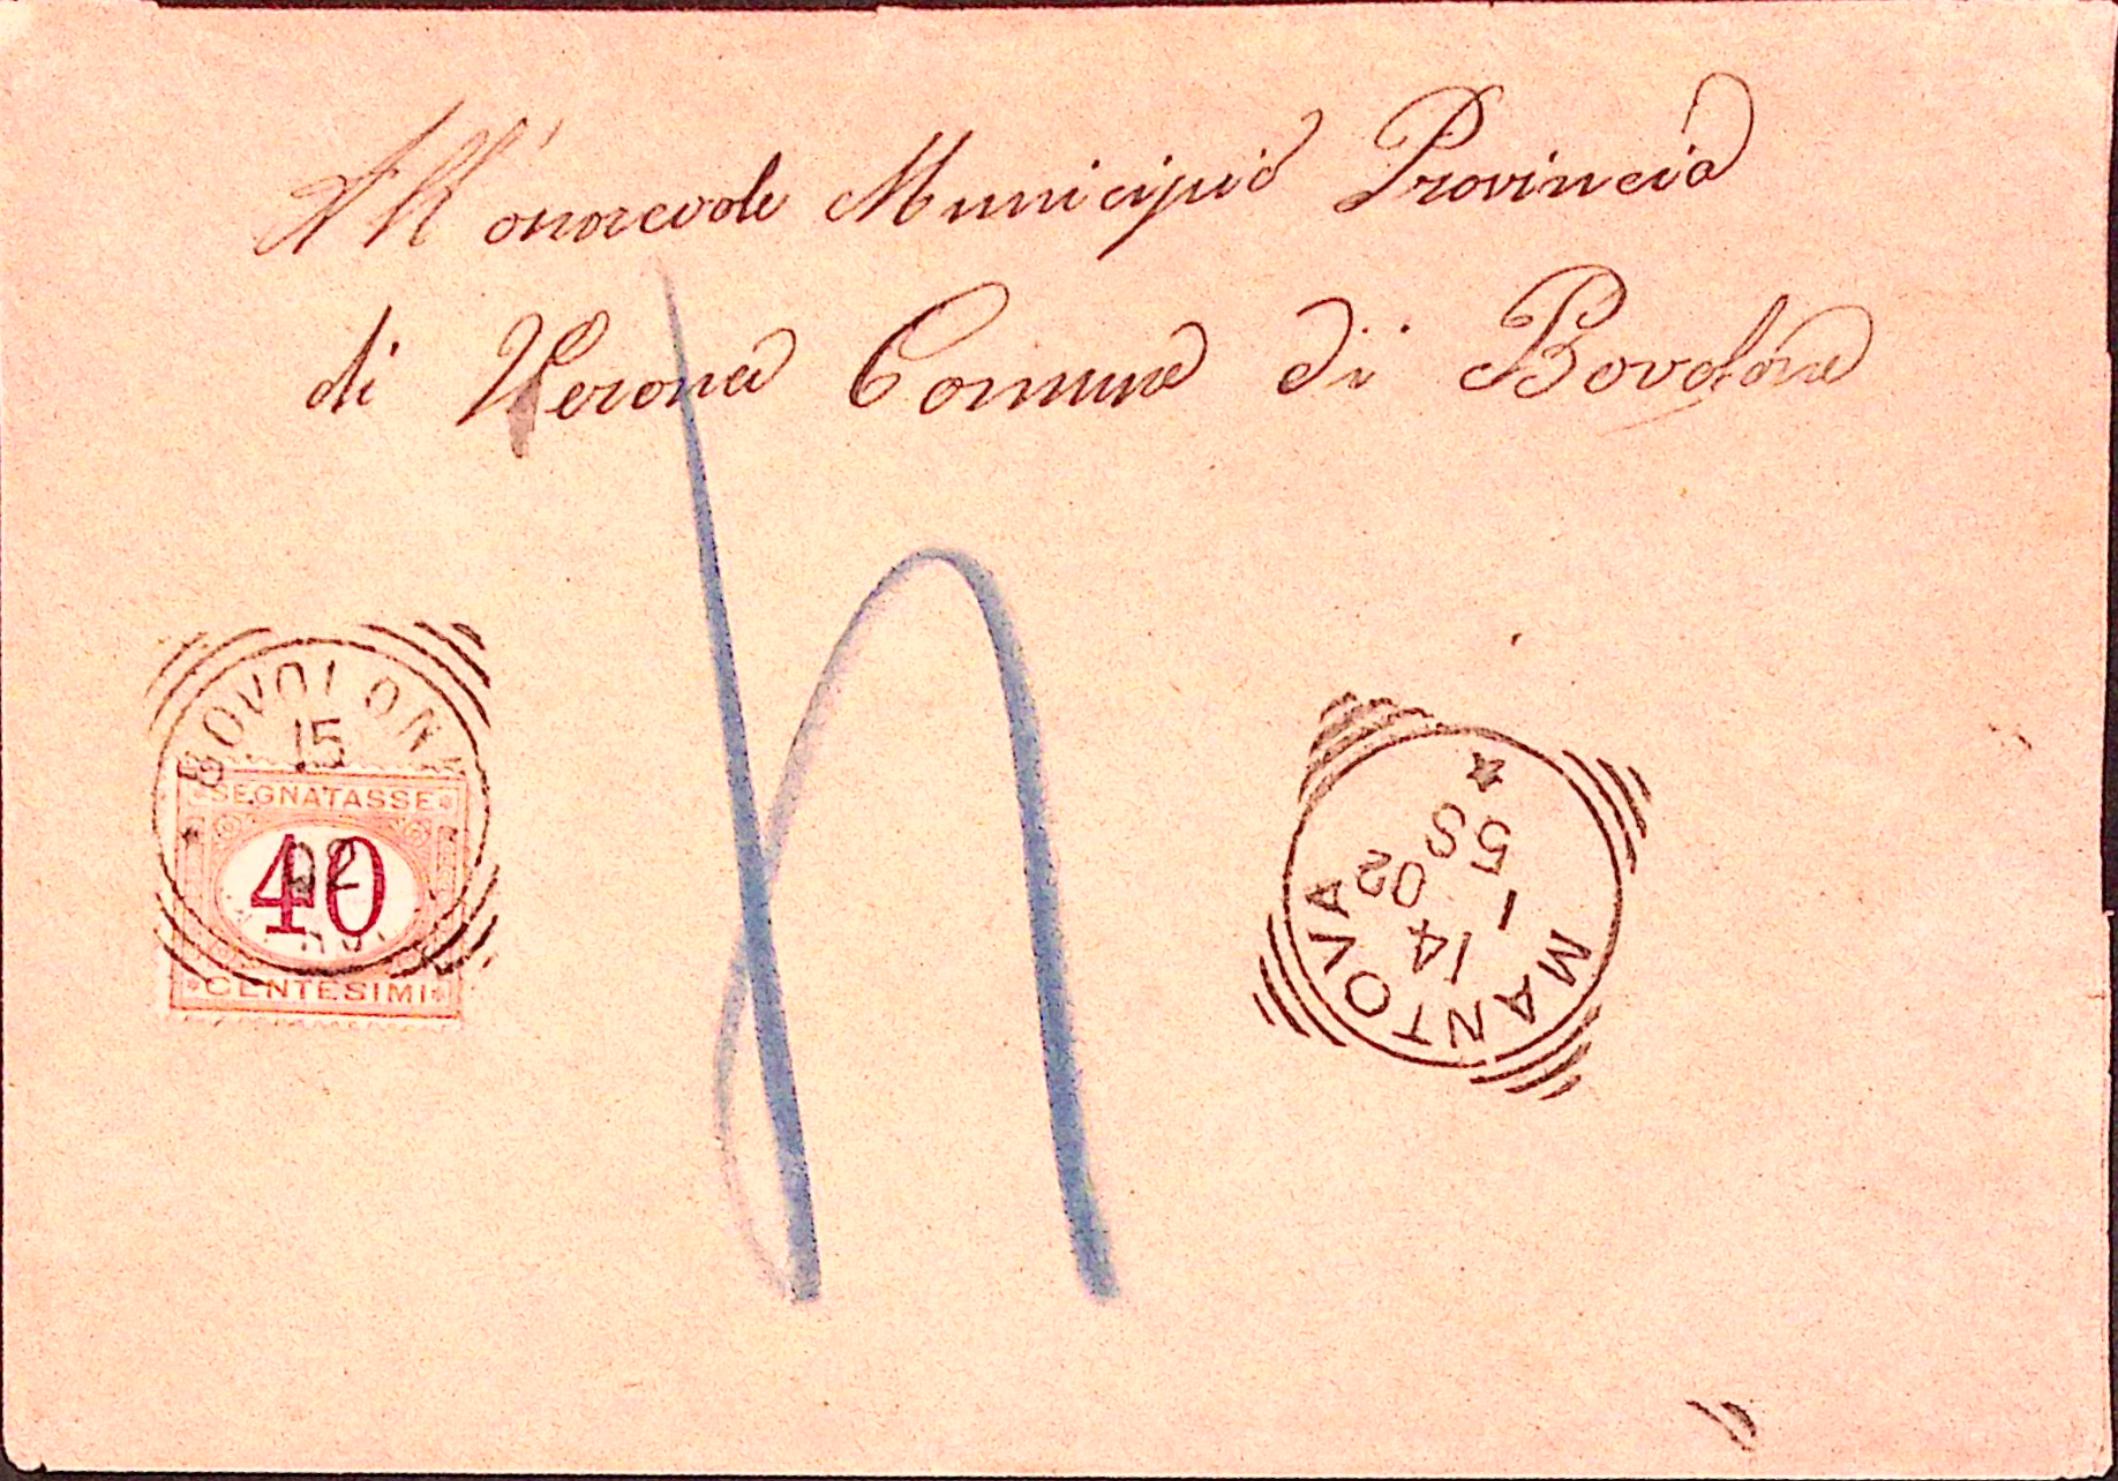 All'onorevole Municipio Provincia
di Verona Comune di Bovolone
BOVOLONE
15
02
SEGNATASSE
40
CENTESIMI
MANTOVA
14
1-5 S
02